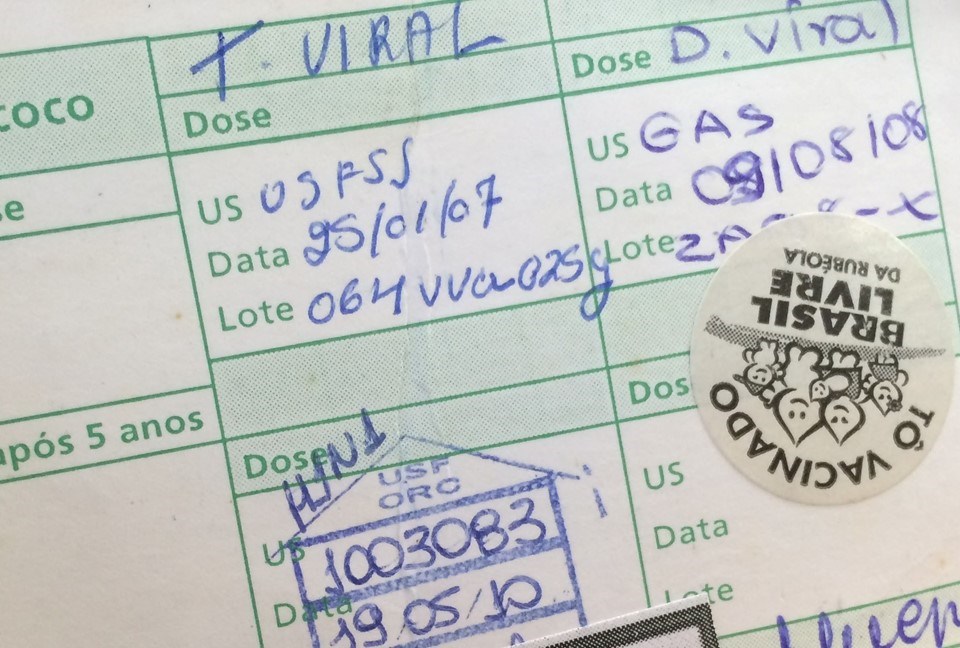 T. VIRAL
Dose D. Viral
COCO
Dose
US GAS
Data 09/08/08
Lote
se
US USFSS
Data 25/01/07
Lote 064VVa025g
BRASIL
LIVRE
DA RUBÉOLA
TÔ VACINADO
após 5 anos
Dose H1N1
Dos
USF
ORC
US
US 1003083
Data
Data 19 05/10
Lote